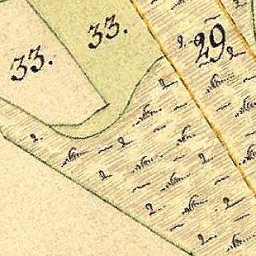 33.
33.
29